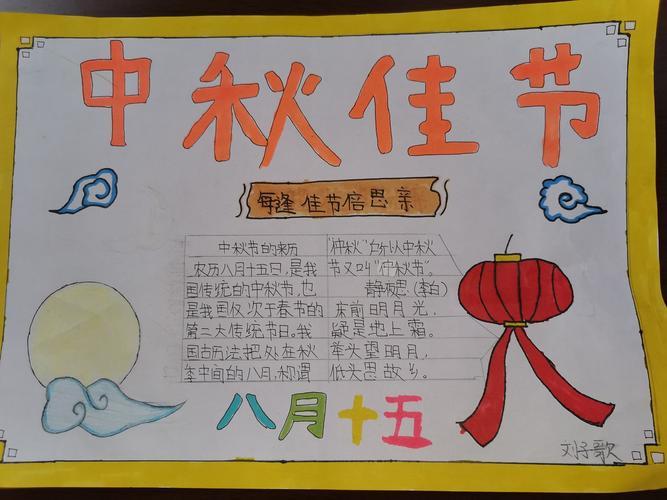 中秋佳节
每逢佳节倍思亲
中秋节的来历
农历八月十五日,是我
国传统的中秋节,也
是我国仅次于春节的
第二大传统节日。我
国古历法把处在秋
季中间的八月,称谓
"仲秋"所以中秋
节又叫"仲秋节"。
静夜思(李白)
床前明月光,
疑是地上霜。
举头望明月,
低头思故乡。
八月十五
刘子歌